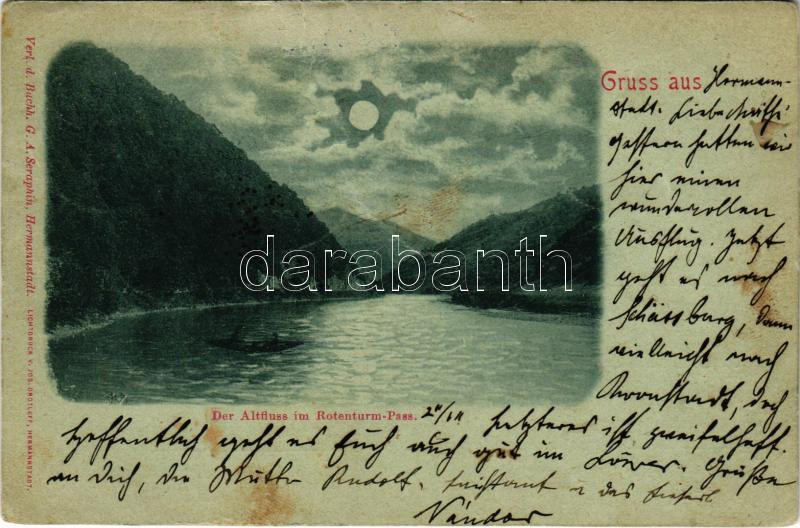 Gruss aus Hermann-
stadt. Liebe
gestern hatten wir
hier einen
wundervollen
Ausflug. Jetzt
geht es nach
Schässburg, dann
vielleicht nach
Kronstadt, doch
Letzteres ist zweifelhaft.
Hoffentlich geht es Euch auch gut im Grüße
an Dich, die Mutter Rudolf, u das
Nándor
Der Altfluss im Rotenturm-Pass.
Verl. d. Buchh. G. A. Seraphin, Hermannstadt.
LICHTDRUCK V. JOS. DROTLEFF, HERMANNSTADT.
darabanth